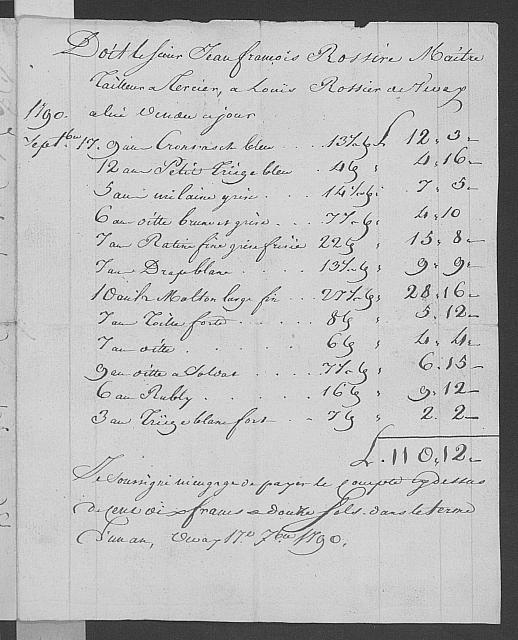 Doit le sieur Jean françois Rossire Maitre
Tailleur a Mercier, a Louis Rossier de Vevay
1790. a lui vendu a jour
Septbre 17. 9 au bleu . . 13½ ß £ 12 „ 3 „
12 au Petit Triège bleu . 4 ß „ 4 „ 16 –
5 au milaine grise . . 14½ ß „ 7 „ 5 –
6 au ditte brune et grise . 7½ ß „ 4 „ 10
7 au Ratine fine grise frisée 22 ß „ 15 „ 8 –
7 au Drap blanc . . . . 13½ ß „ 9 „ 9 –
10 au½ Molton large fin . . 27½ ß „ 28 „ 16 –
7 au Toille forte . . . . 8 ß „ 5 „ 12 –
7 au ditte . . . . . 6 ß „ 4 „ 4 –
9 au ditte a Soldat . . 7½ ß „ 6 „ 15 –
6 au Rubly . . . . . 16 ß „ 9 „ 12 –
3 au Triège blanc fort . . 7 ß „ 2 „ 2 –
£ . 110 „ 12 –
Je soussigné m'engage de payer le compte cy dessus
de cent dix francs & douze sols dans le terme
d'un an, Vevay 17e 7bre 1790.